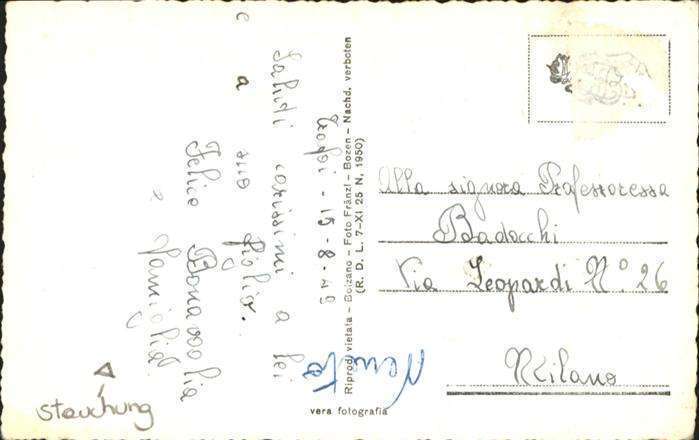 Trafoi - 15-8-49
Saluti carissimi a lei
e a suo figlio.
Felice
e famiglia
Stauchung
Riprod. vietata - Bolzano - Foto Fränzl - Bozen - Nachd. verboten
(R. D. L. 7-XI 25 N, 1950)
vera fotografia
Alla signora Professoressa
Badocchi
Via Leopardi N° 26
Milano